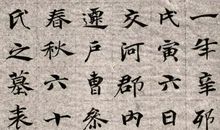 一年辛卯
戊寅六日
交河郡内
遷戶曹參
春秋六十
氏之墓表